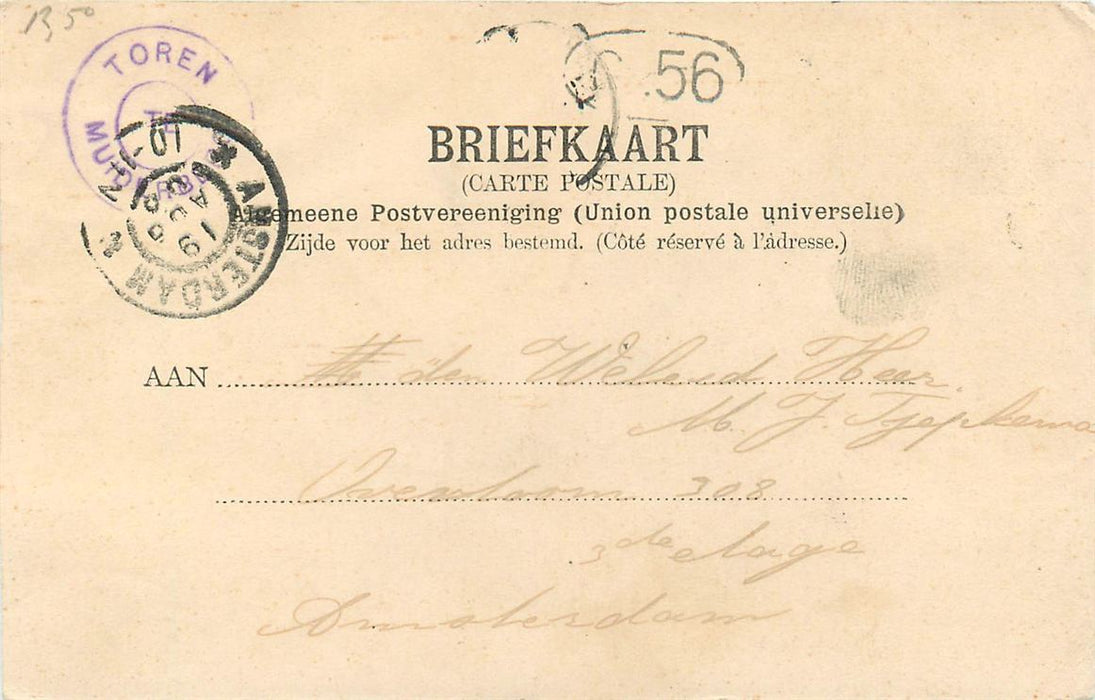 13,50
TOREN
TE
MUIDERBERG
AMSTERDAM
56
BRIEFKAART
(CARTE POSTALE)
Algemeene Postvereeniging (Union postale universelle)
Zijde voor het adres bestemd. (Côté réservé à l'adresse.)
AAN den Weledl Heer
M. J. Tjepkema
Overtoom 308
3de etage
Amsterdam